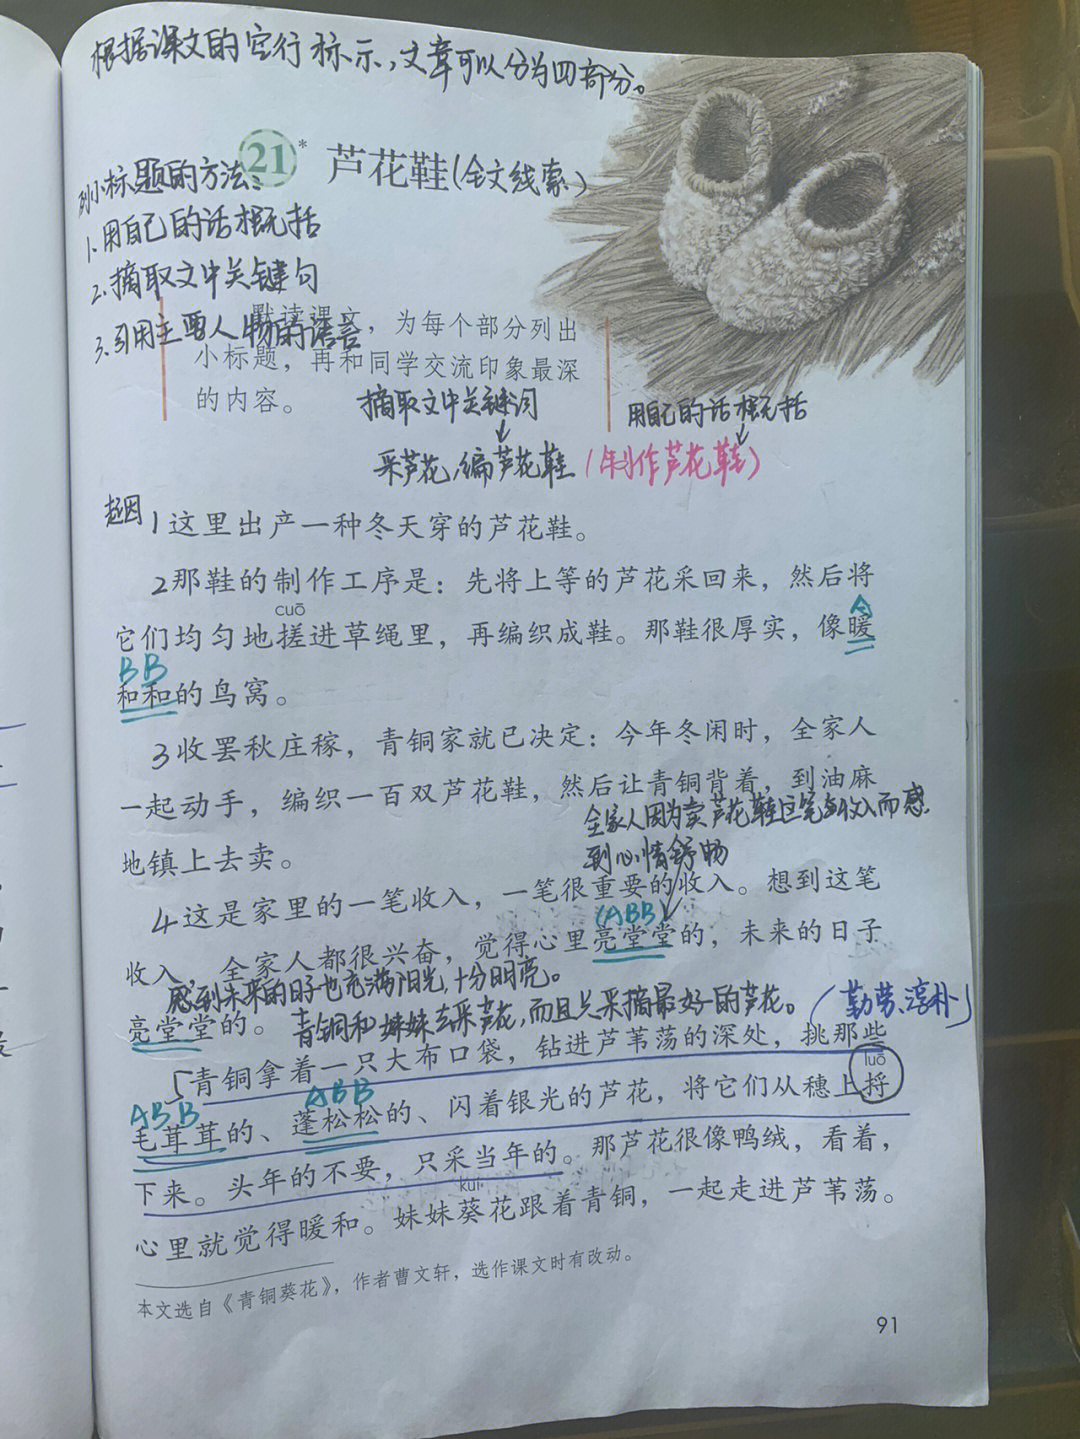 根据课文的空行标示,文章可以分为四部分。
21* 芦花鞋(全文线索)
列小标题的方法:
1.用自己的话概括
2.摘取文中关键句
3.引用主要人物的语言
默读课文，为每个部分列出
小标题，再和同学交流印象最深
的内容。
摘取文中关键词
用自己的话概括
采芦花,编芦花鞋
(制作芦花鞋)
起因
1这里出产一种冬天穿的芦花鞋。
2那鞋的制作工序是：先将上等的芦花采回来，然后将
cuō
它们均匀地搓进草绳里，再编织成鞋。那鞋很厚实，像暖
A
BB
和和的鸟窝。
3收罢秋庄稼，青铜家就已决定：今年冬闲时，全家人
一起动手，编织一百双芦花鞋，然后让青铜背着，到油麻
全家人因为卖芦花鞋这笔收入而感
到心情舒畅
地镇上去卖。
4这是家里的一笔收入，一笔很重要的收入。想到这笔
(ABB)
收入，全家人都很兴奋，觉得心里亮堂堂的，未来的日子
感到未来的日子也充满阳光,十分明亮。
亮堂堂的。
青铜和妹妹去采芦花,而且只采摘最好的芦花。
(勤劳、淳朴)
5青铜拿着一只大布口袋，钻进芦苇荡的深处，挑那些
luō
ABB
ABB
毛茸茸的、蓬松松的、闪着银光的芦花，将它们从穗上捋
下来。头年的不要，只采当年的。那芦花很像鸭绒，看着，
kuí
心里就觉得暖和。妹妹葵花跟着青铜，一起走进芦苇荡。
本文选自《青铜葵花》，作者曹文轩，选作课文时有改动。
91